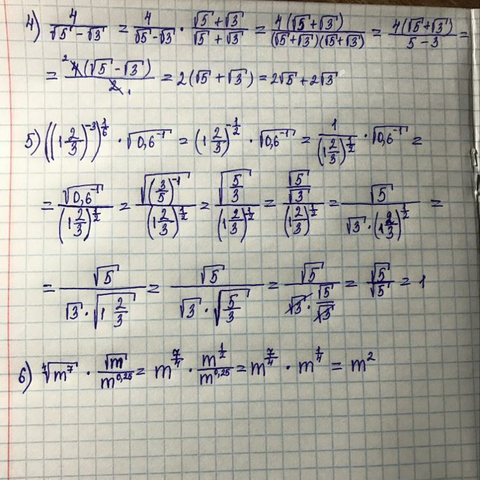 4) 4/(√5 - √3) = 4/(√5 - √3) · (√5 + √3)/(√5 + √3) = 4(√5 + √3)/((√5 + √3)(√5 + √3)) = 4(√5 + √3)/(5 - 3) =
= ²4(√5 - √3)/2₁ = 2(√5 + √3) = 2√5 + 2√3
5) ((1 2/3)^-3)^(1/6) · √(0,6^-1) = (1 2/3)^(-1/2) · √(0,6^-1) = 1/(1 2/3)^(1/2) · √(0,6^-1) =
= √(0,6^-1)/(1 2/3)^(1/2) = √((3/5)^-1)/(1 2/3)^(1/2) = √(5/3)/(1 2/3)^(1/2) = (√5/√3)/(1 2/3)^(1/2) = √5/(√3 · (1 2/3)^(1/2)) =
= √5/(√3 · √(1 2/3)) = √5/(√3 · √(5/3)) = √5/(√3 · √5/√3) = √5/√5 = 1
6) ⁴√(m^7) · √m/m^0,25 = m^(7/4) · m^(1/2)/m^0,25 = m^(7/4) · m^(1/4) = m^2